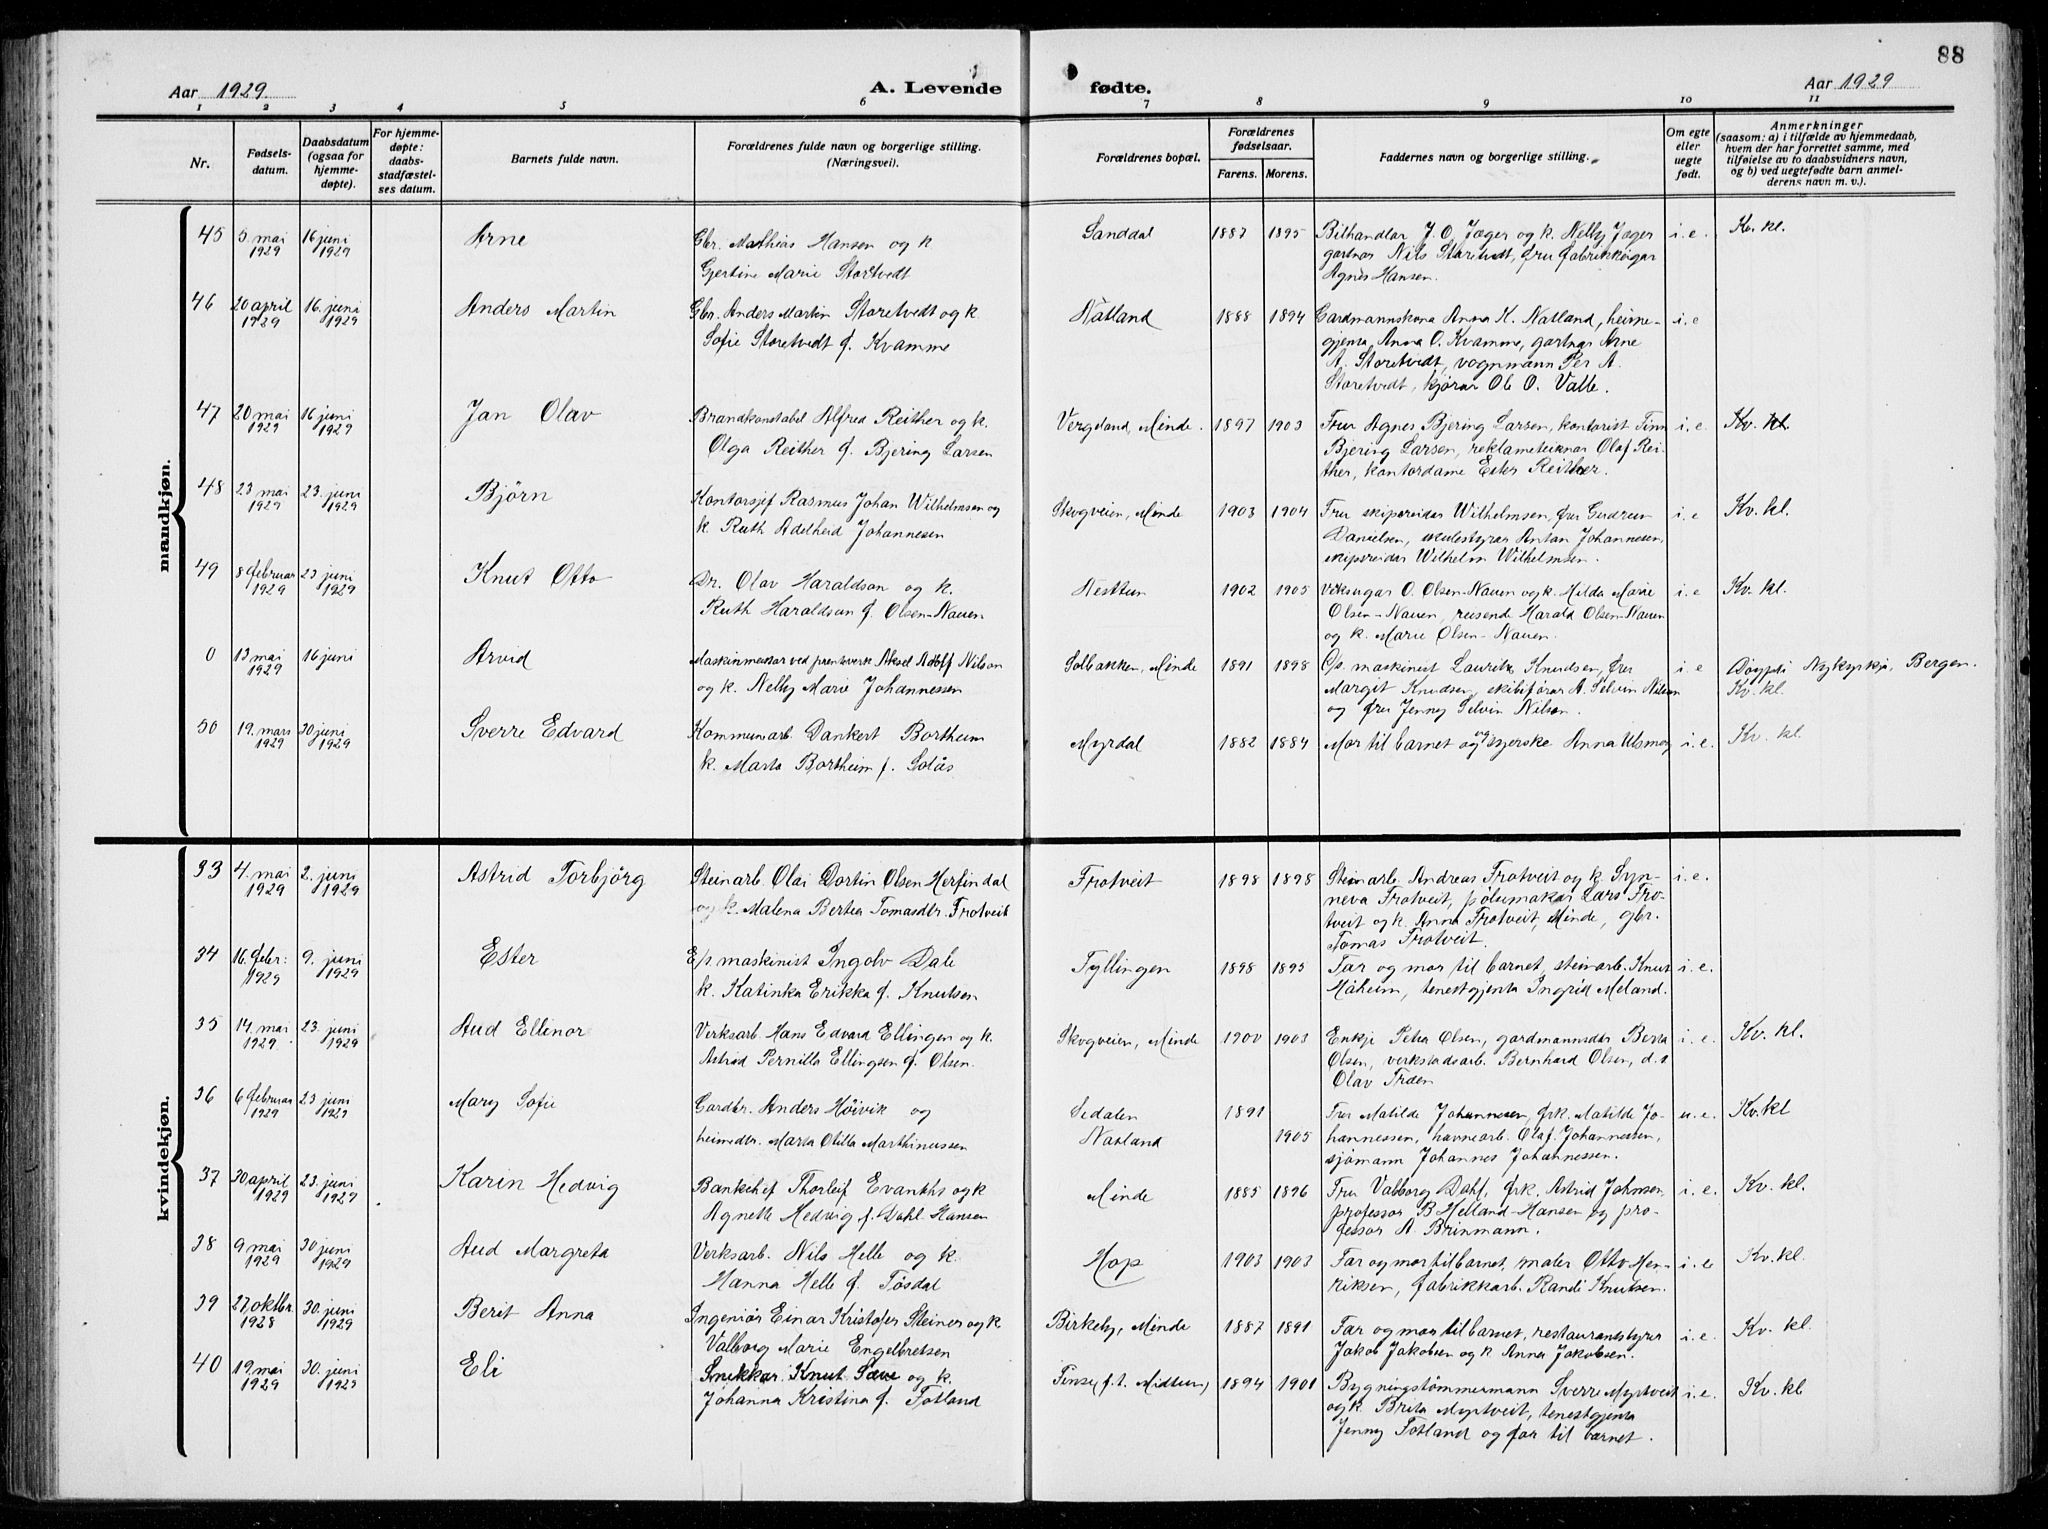 88
Aar 1929
A. Levende
fødte.
Aar 1929
1 2 3 4 5 6 7 8 9 10 11
Nr.
Fødsels-
datum.
Daabsdatum
(ogsaa for
hjemme-
døpte).
For hjemme-
døpte:
daabs-
stadfæstel-
ses datum.
Barnets fulde navn.
Forældrenes fulde navn og borgerlige stilling.
(Næringsvei).
Forældrenes bopæl.
Forældrenes
fødselsaar.
Farens. Morens.
Faddernes navn og borgerlige stilling.
Om egte
eller
uegte
født.
Anmerkninger
(saasom: a) i tilfælde av hjemmedaab,
hvem der har forrettet samme, med
tilføielse av to daabsvidners navn,
og b) ved uegtefødte barn anmel-
derens navn m. v.).
mandkjøn.
45 5. mai 1929 16 juni 1929 Arne
Gbr. Mathias Hansen og k
Gjertine Marie Storetvedt
Sanddal 1887 1895
Bilhandlar J. O. Jæger og k. Nelly Jæger
gartnar Nils Storetvedt, fru fabrikkeigar
Agnes Hansen.
i. e. Kv. kl.
46 20 april 1929 16. juni 1929 Anders Martin
Gbr. Anders Martin Storetvedt og k.
Sofie Storetvedt f. Kvamme
Natland 1888 1894
Gardmannskona Anna H. Natland, heime-
gjenta Anna O. Kvamme, gartnar Arne
A. Storetvedt, vognmann Per A.
Storetvedt, kjørar Ol. O. Valle.
i. e
47 20 mai 1929 16 juni 1929 Jan Olav
Brandkonstabel Alfred Reither og k.
Olga Reither f. Bjering Larsen
Vergeland, Minde. 1897 1903
Fru Agnes Bjering Larsen, kontorist Finn
Bjering Larsen, reklameteiknar Olaf Rei-
ther, kontordame Ester Reither.
i. e. Kv. kl.
48 23 mai 1929 23. juni 1929 Bjørn
Kontorsjef Rasmus Johan Wilhelmsen og
k. Ruth Adelheid Johannesen
Skogveien, Minde 1903 1904
Fru skipsreidar Wilhelmsen, fru Gudrun
Danielsen, skulestyrar Anton Johannesen,
skipsreidar Wilhelm Wilhelmsen.
i. e Kv. kl.
49 8 februar 1929 23 juni 1929 Knut Otto
Dr. Olav Haraldson og k.
Ruth Haraldson f. Olsen-Nauen
Nesttun 1902 1905
O. Olsen-Nauen og k. Hilda Marie
Olsen-Nauen, reisende Harald Olsen-Nauen
og k. Marie Olsen-Nauen.
i. e Kv. kl.
0 13 mai 1929 16 juni Arvid
Maskinmestar ved prentverk Aksel Adolf Nilson
og k. Nelly Marie Johannessen
Solbakken, Minde 1891 1898
E/s. maskinist Lauritz Knudsen, fru
Margit Knudsen, skibsførar A. Selvin Nilson
og fru Jenny Selvin Nilson.
i. e Døypt i Nykyrkja, Bergen.
Kv. kl.
50 19. mars 1929 30 juni 1929 Sverre Edvard
Kommunearb. Dankert Bortheim
k. Marta Bortheim f. Solås
Myrdal 1882 1884
Mor til barnet og syerske Anna Ulsmåg
i. e. Kv. kl.
kvindekjøn.
33 4. mai 1929 2. juni 1929 Astrid Torbjørg
Steinarb. Olai Dortin Olsen Herfindal
og k. Malena Bertea Tomasdtr. Frotveit
Frotveit 1898 1898
Steinarb. Andreas Frotveit og k. Syn-
neva Frotveit, pølsemakar Lars Fro-
tveit og k. Anna Frotveit, Minde, gbr.
Tomas Frotveit.
i. e.
34 16. febr: 1929 9. juni 1929 Ester
E/s. maskinist Ingolv Dale
k. Katinka Erikka f. Knutsen
Tyllingen 1898 1895
Far og mor til barnet, steinarb. Knut
Måheim, tenestgjenta Ingrid Meland.
i. e.
35 14. mai 1929. 23. juni 1929 Aud Ellinor
Verksarb. Hans Edvard Ellingsen og k.
Astrid Pernilla Ellingsen f. Olsen.
Skogveien, Minde 1900 1903
Enkje Petra Olsen, gardmannsdtr Berta
Olsen, verkstadsarb. Bernhard Olsen, d. s
Olav Troen
i. e. Kv. kl.
36 6 februar 1929 23 juni 1929 Mary Sofie
Gardbr. Anders Høivik og
heimedtr. Marta Otilla Marthinussen
Sedalen 1891
Natland 1905
Fru Matilde Johannesen, frk. Matilde Jo-
hannessen, havnearb. Olaf Johannessen,
sjømann Johannes Johannessen.
u. e. Kv. kl
37 30 april 1929 23. juni 1929 Karin Hedvig
Bankchef Thorleif Evanths og k
Agnette Hedvig f. Dahl-Hansen
Minde 1885 1896
Fru Valborg Dahl, frk. Astrid Johnsen,
professor B Helland-Hansen og pro-
fessor A. Brinmann.
i. e. Kv. kl.
38 9 mai 1929 30 juni 1929 Aud Margreta
Verksarb. Nils Helle og k.
Hanna Helle f. Tøsdal
Hop 1903 1903
Far og mor til barnet, maler Otto Hen-
riksen, fabrikkarb. Randi Knutsen.
i. e Kv. kl.
39 27. oktbr. 1928 30. juni 1929 Berit Anna
Ingeniør Einar Kristofer Steiner og k
Valborg Marie Engelbretsen
Birkeby, Minde 1887 1891
Far og mor til barnet, restaurantstyrer
Jakob Jakobsen og k. Anna Jakobsen.
i. e. Kv. kl.
40 19. mai 1929 30. juni 1929 Eli
Snikkar Knut Sæve og k.
Johanna Kristina f. Totland
Finse (f. t. Midtun) 1894 1901
Bygningstømmermann Sverre Myrtveit
og k. Brita Myrtveit, tenestgjenta
Jenny Totland og far til barnet.
i. e. Kv. kl